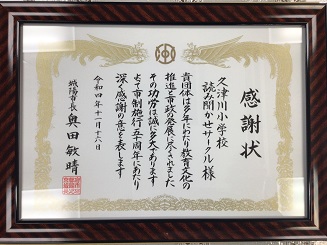 感謝状
久津川小学校
読み聞かせサークル様
貴団体は多年にわたり教育文化の
推進と市政の発展に尽くされました
その功労は誠に多大であります
よって市制施行五十周年にあたり
深く感謝の意を表します
令和四年十一月十八日
城陽市長 奥田敏晴